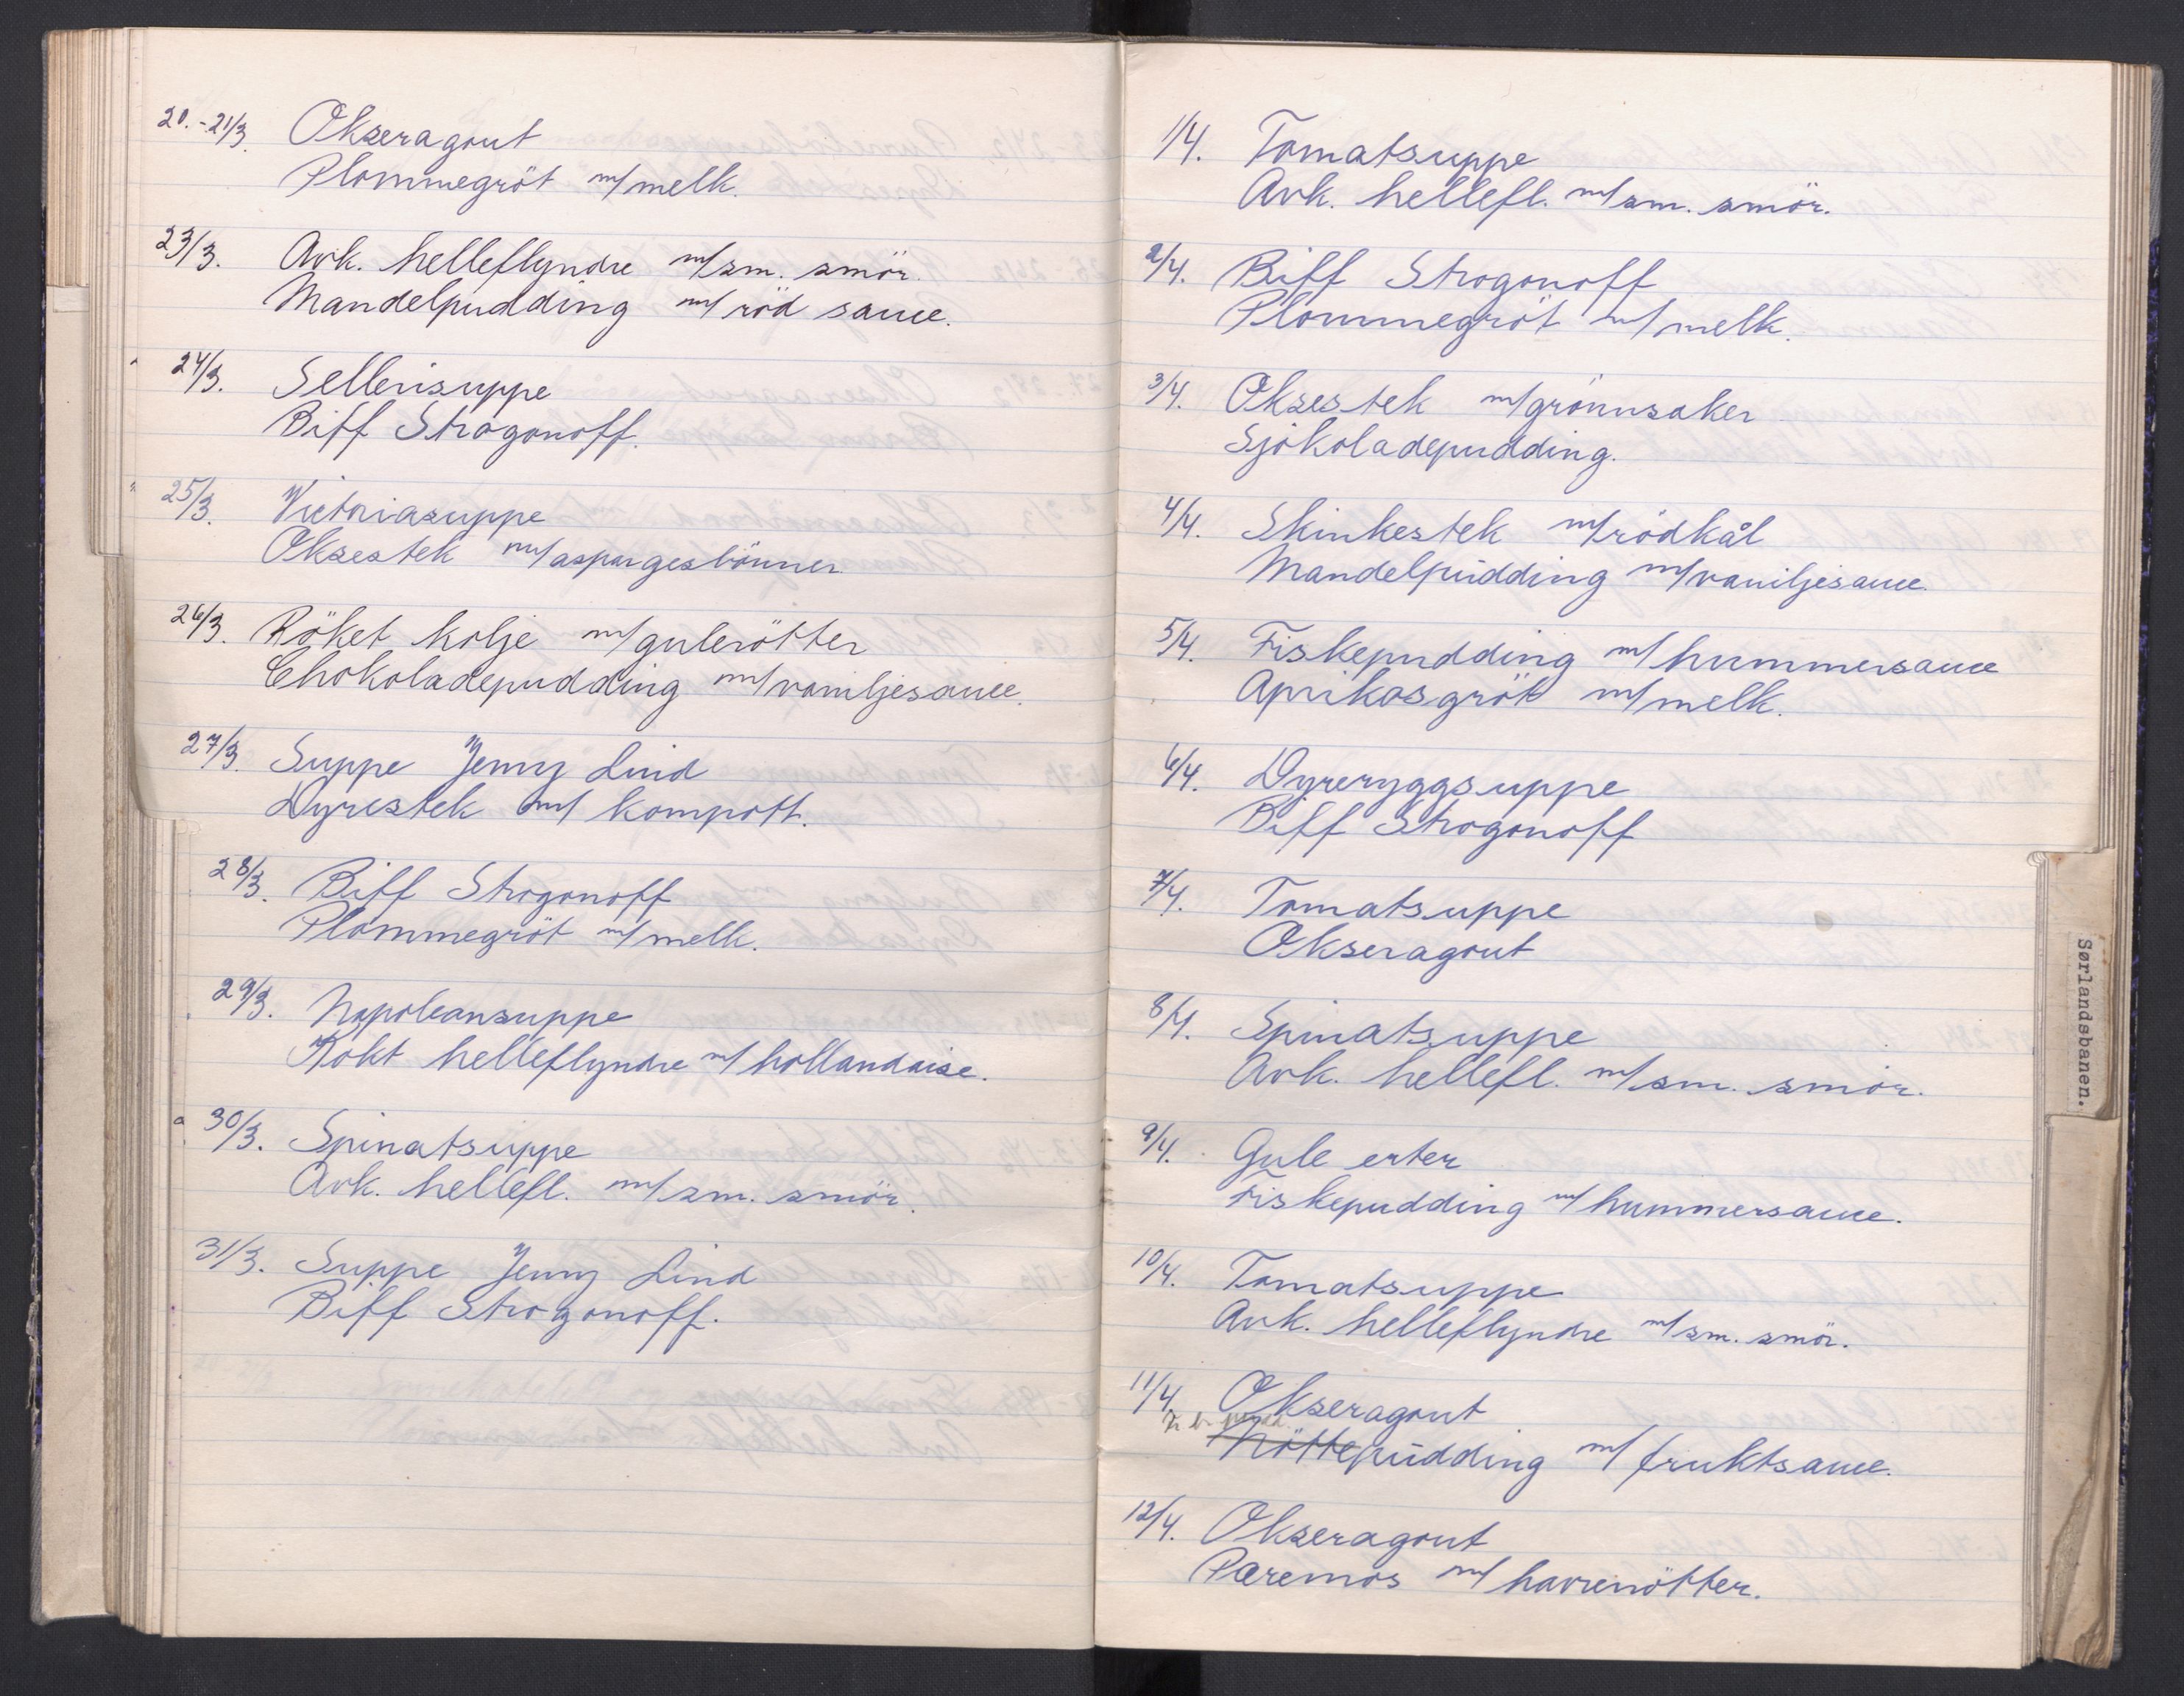 20.-21/3. Okseragout
Plommegröt m/melk.
23/3. Avk. helleflyndre m/sm. smör.
Mandelpudding m/röd sauce.
24/3. Sellerisuppe
Biff Strogonoff.
25/3. Victoriasuppe
Oksestek m/aspargesbönner.
26/3. Röket kolje m/gulerötter
Chokoladepudding m/vaniljesauce.
27/3. Suppe Jenny Lind
Dyrestek m/ kompott.
28/3. Biff Strogonoff
Plommegröt m/melk.
29/3. Napoleansuppe
Kokt helleflyndre m/hollandaise.
30/3. Spinatsuppe
Avk. hellefl. m/sm. smör.
31/3. Suppe Jenny Lind
Biff Strogonoff.
1/4. Tomatsuppe
Avk. hellefl. m/sm. smör.
2/4. Biff Strogonoff
Plommegröt m/melk.
3/4. Oksestek m/grönnsaker
Sjokoladepudding.
4/4. Skinkestek m/rödkål
Mandelpudding m/vaniljesauce.
5/4. Fiskepudding m/hummersauce
Aprikosgröt m/melk.
6/4. Dyreryggsuppe
Biff Strogonoff
7/4. Tomatsuppe
Okseragout
8/4. Spinatsuppe
Avk. hellefl. m/sm. smör.
9/4. Gule erter
Fiskepudding m/hummersauce.
10/4. Tomatsuppe
Avk. helleflyndre m/sm. smör.
11/4. Okseragout
Nöttepudding m/fruktsauce.
12/4. Okseragout
Pæremos m/havrenötter.
Sørlandsbanen.